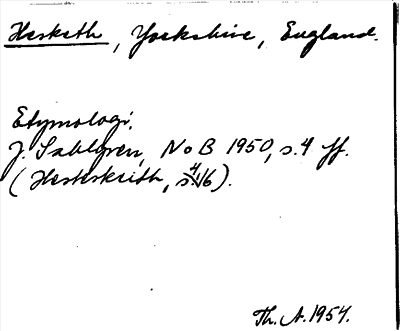 Hesketh, Yorkshire, England.
Etymologi.
J. Sahlgren, NoB 1950, s. 4 ff.
(Hesteskeith, s. 16).
Th. A. 1954.